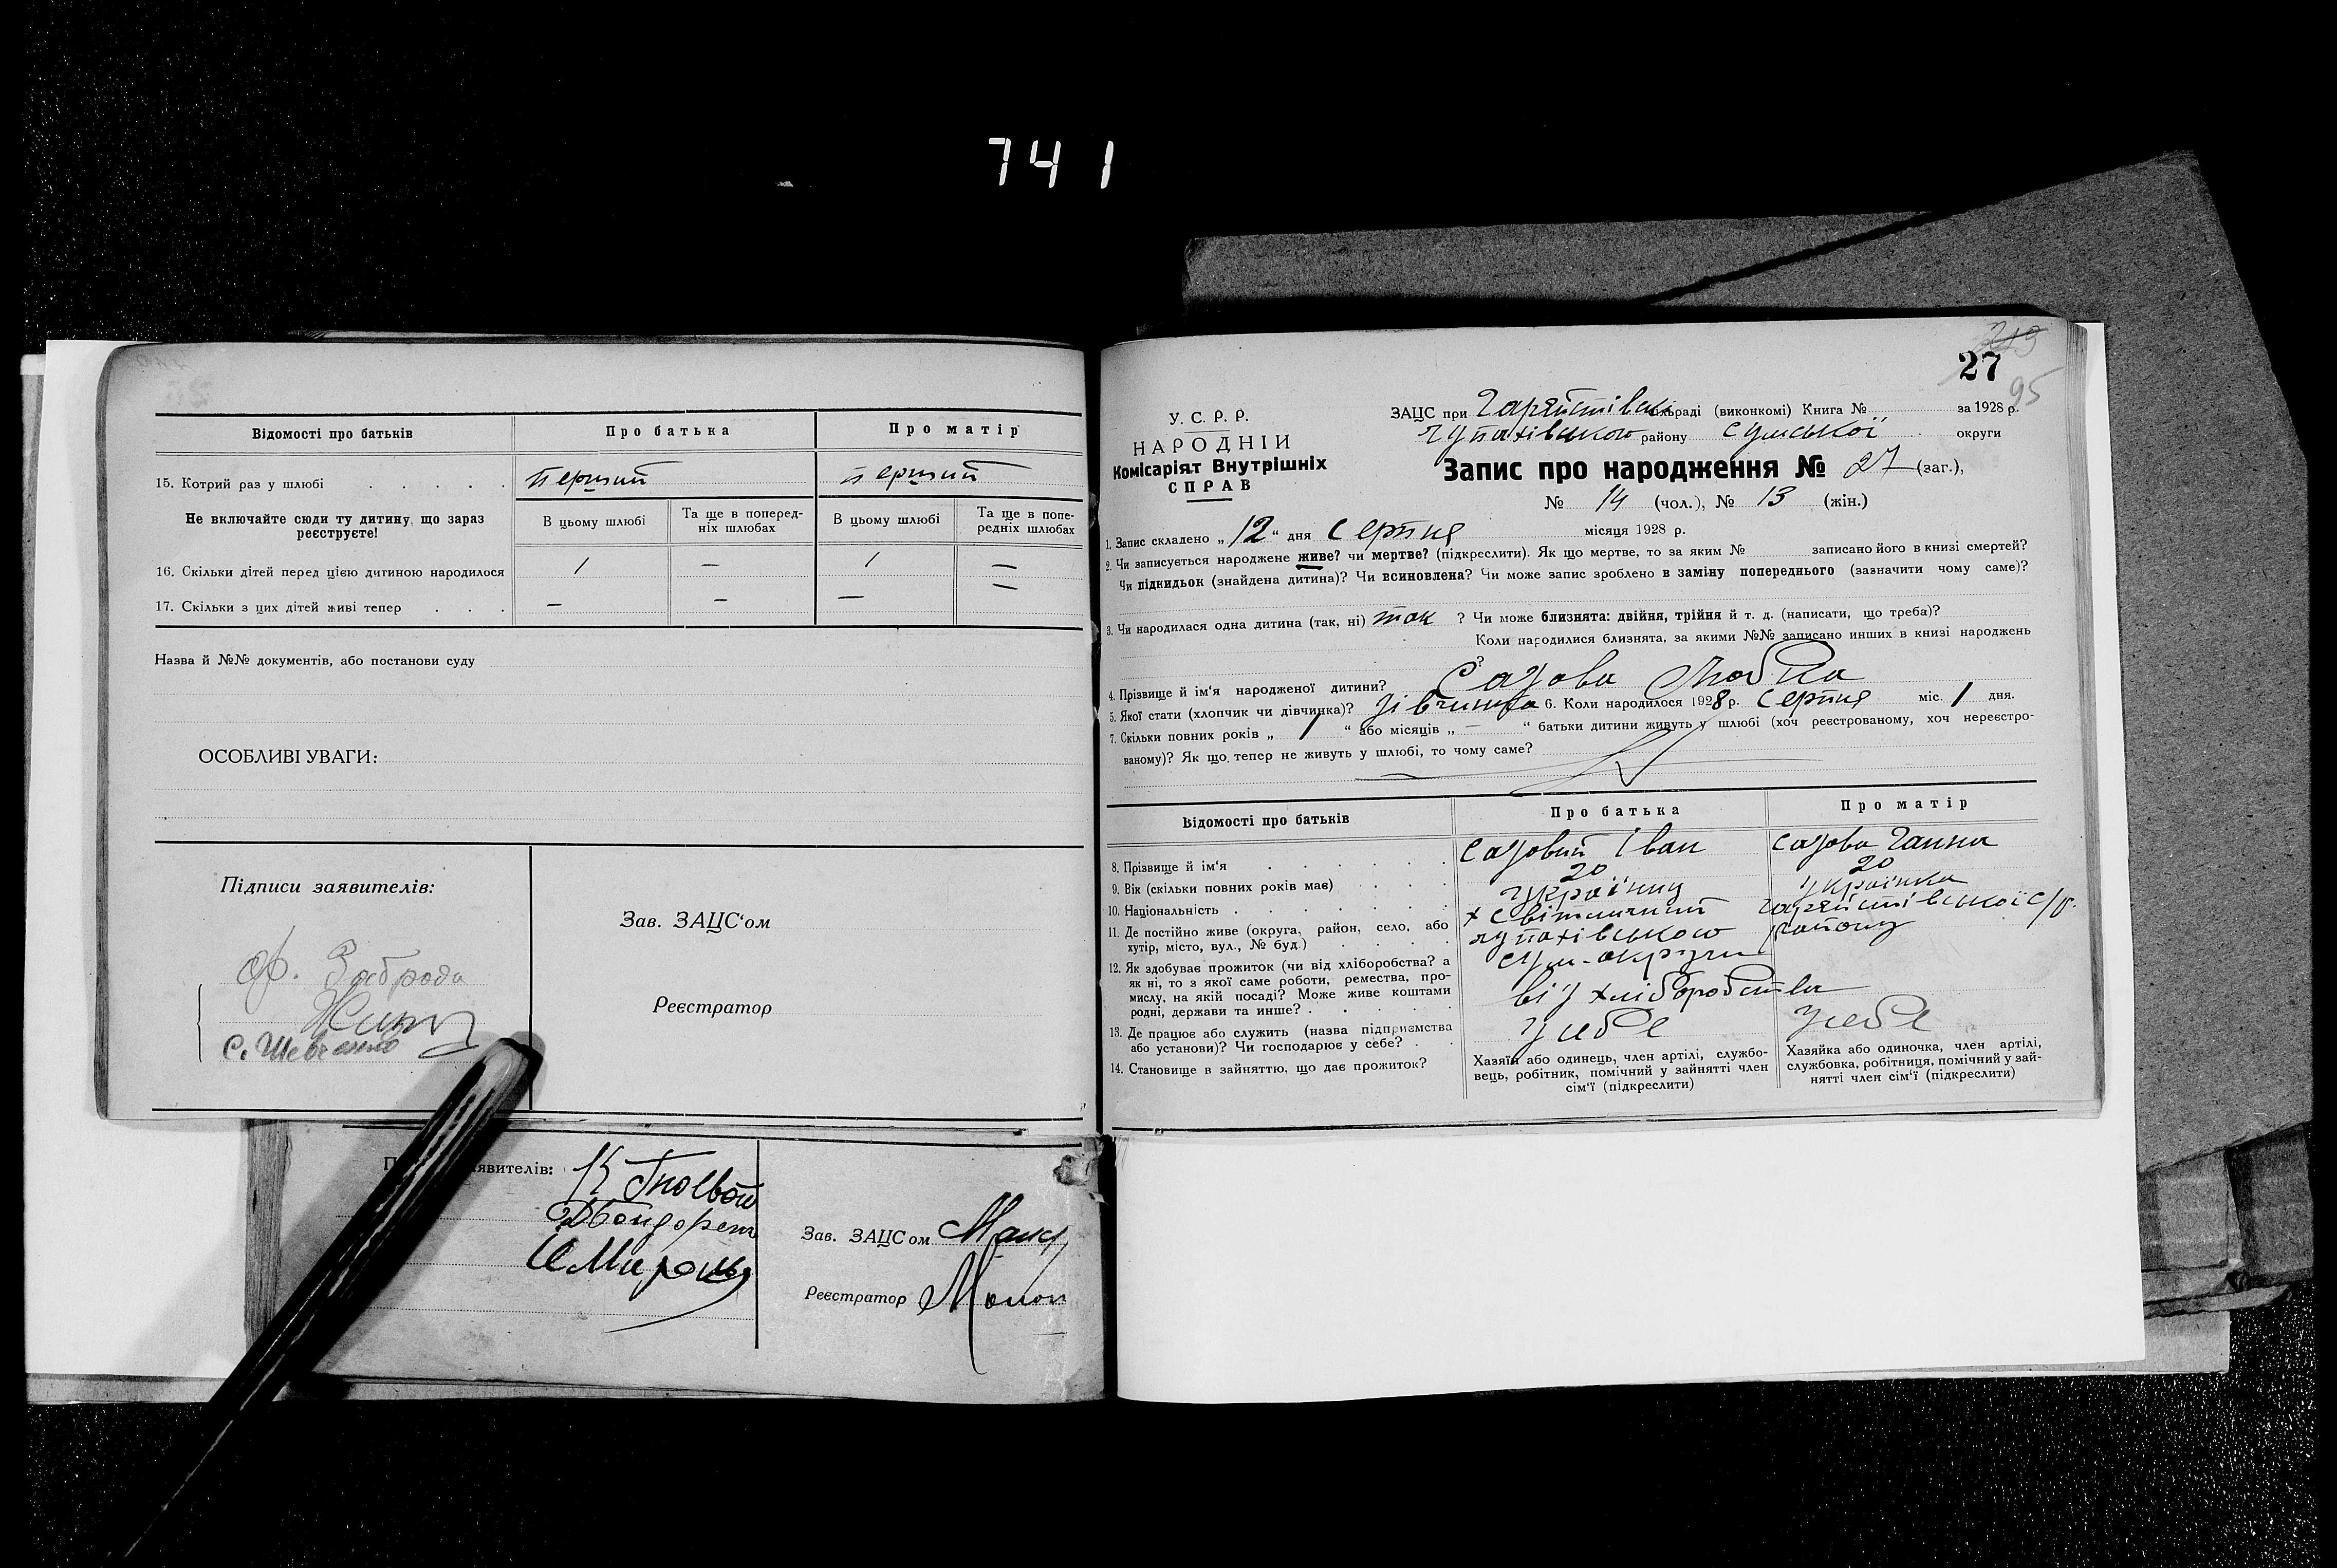 741
Відомості про батьків
Про батька
Про матір
15. Котрий раз у шлюбі
перший
перший
Не включайте сюди ту дитину, що зараз реєструєте!
В цьому шлюбі
Та ще в поперед-
ніх шлюбах
В цьому шлюбі
Та ще в попе-
редніх шлюбах
16. Скільки дітей перед цією дитиною народилося
1 — 1 —
17. Скільки з цих дітей живі тепер
— — — —
Назва й №№ документів, або постанови суду
ОСОБЛИВІ УВАГИ:
Підписи заявителів:
Зав. ЗАЦС'ом
Реєстратор
Заброда
С. Шевченко
явителів:
Зав. ЗАЦС ом
Реєстратор
27
95
У. С. Р. Р.
НАРОДНІЙ
Комісаріят Внутрішніх
СПРАВ
ЗАЦС при сільраді (виконкомі) Книга № за 1928 р.
району Сумської округи
Запис про народження № 27 (заг.),
№ 14 (чол.), № 13 (жін.)
1. Запис складено „12“ дня Серпня місяця 1928 р.
2. Чи записується народжене живе? чи мертве? (підкреслити). Як що мертве, то за яким № записано його в книзі смертей?
Чи підкидьок (знайдена дитина)? Чи всиновлена? Чи може запис зроблено в заміну попереднього (зазначити чому саме)?
3. Чи народилася одна дитина (так, ні) так ? Чи може близнята: двійня, трійня й т. д. (написати, що треба)?
Коли народилися близнята, за якими №№ записано инших в книзі народжень
?
4. Прізвище й ім'я народженої дитини? Садова Любка
5. Якої стати (хлопчик чи дівчинка)? дівчинка 6. Коли народилося 1928 р. Серпня міс. 1 дня.
7. Скільки повних років „ 1 “ або місяців „ — “ батьки дитини живуть у шлюбі (хоч реєстрованому, хоч нереєстро-
ваному)? Як що тепер не живуть у шлюбі, то чому саме?
Відомості про батьків
Про батька
Про матір
8. Прізвище й ім'я
Садовий Іван
Садова Ганна
9. Вік (скільки повних років має)
20
20
10. Національність
Українец
Українка
11. Де постійно живе (округа, район, село, або
хутір, місто, вул., № буд.)
х Світличний
району
Сум-округи
12. Як здобуває прожиток (чи від хліборобства? а
як ні, то з якої саме роботи, ремества, про-
мислу, на якій посаді? Може живе коштами
родні, держави та инше?
від хліборобства
13. Де працює або служить (назва підприємства
або установи)? Чи господарює у себе?
у себе
у себе
14. Становище в зайняттю, що дає прожиток?
Хазяїн або одинець, член артілі, службо-
вець, робітник, помічний у зайнятті член
сім'ї (підкреслити)
Хазяйка або одиночка, член артілі,
службовка, робітниця, помічний у зай-
нятті член сім'ї (підкреслити)